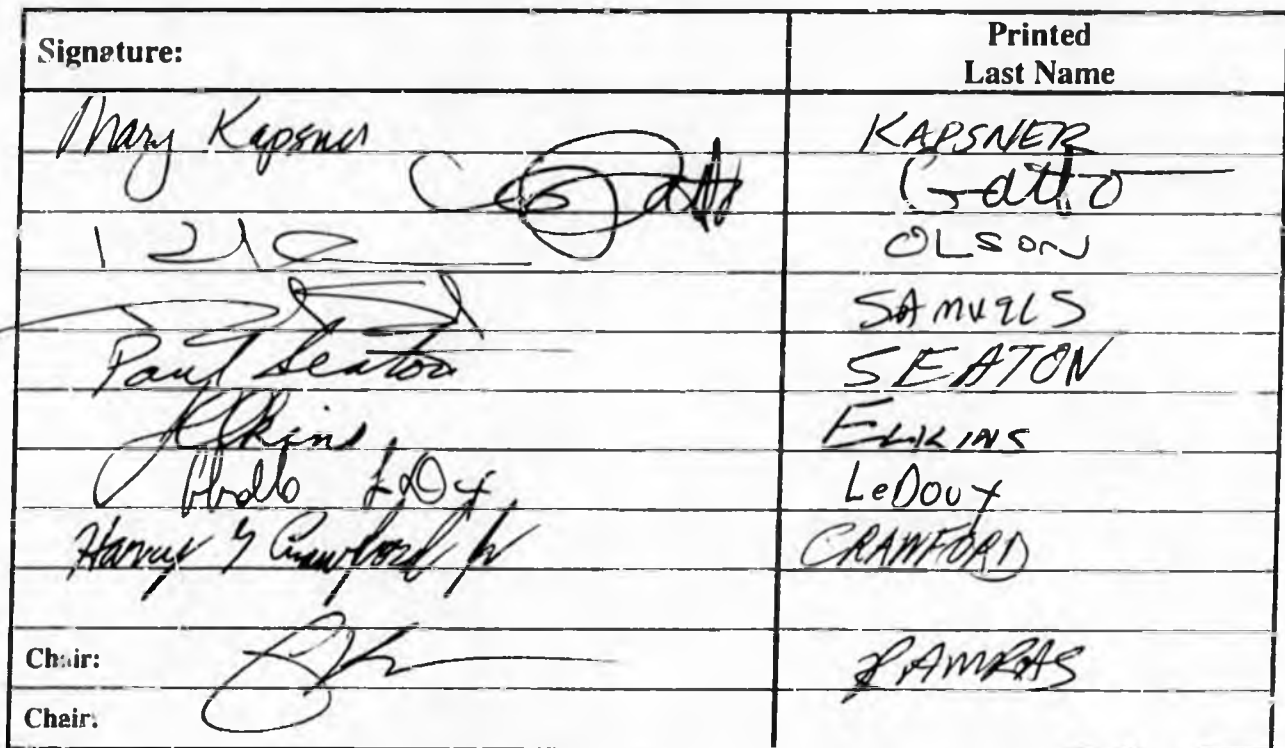 Signature: Printed
Last Name
Mary Kapsner KAPSNER
Gatto Gatto
OLSON
SAMUELS
Paul Seaton SEATON
Elkins ELKINS
LeDoux LeDoux
Harvey Crawford CRAWFORD
Chair: RAMRAS
Chair: